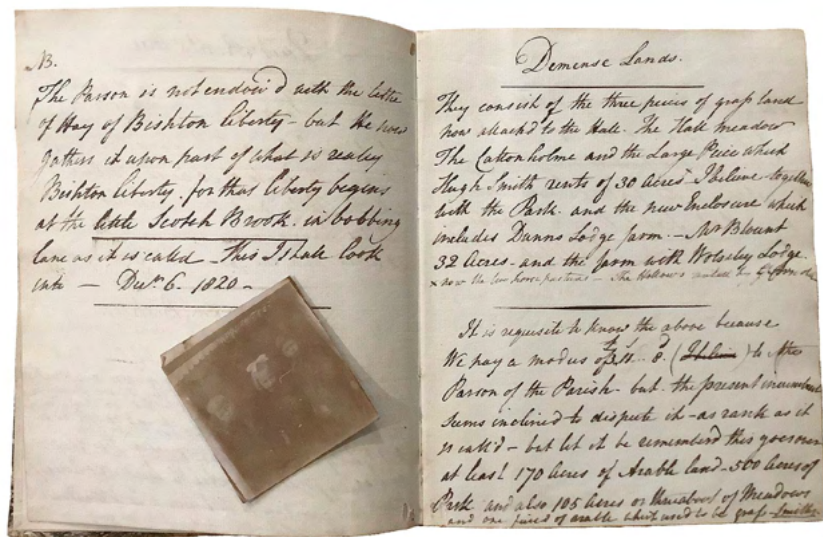 NB.
The Parson is not endow'd with the tithe
of Hay of Bishton Liberty - but he now
gathers it upon part of what is really
Bishton Liberty. for that liberty begins
at the little Scotch Brook. in bobbing
lane as it is called This I shall look
into - Decr. 6. 1820 -
Demense Lands.
They consist of the three pieces of grass land
now attachd to the Hall. The Hall meadow
The Cattonholme and the Large Peice which
Hugh Smith rents of 30 Acres I believe - together
with the Park. and the new Enclosure which
includes Dunns Lodge farm. - Mr Blount
32 Acres - and the farm with Wolseley Lodge.
x now the - The Hollows
It is requisite to know the above because
We pay a modus of 8. (I believe) to the
Parson of the Parish - but the present incumbent
seems inclined to dispute it - as rank as it
is call'd - but let it be rememberd this goes over
at least 170 Acres of Arable land - 500 Acres of
Park and also 105 Acres or thereabout of Meadows
and one piece of arable which used to be grass - Smiths